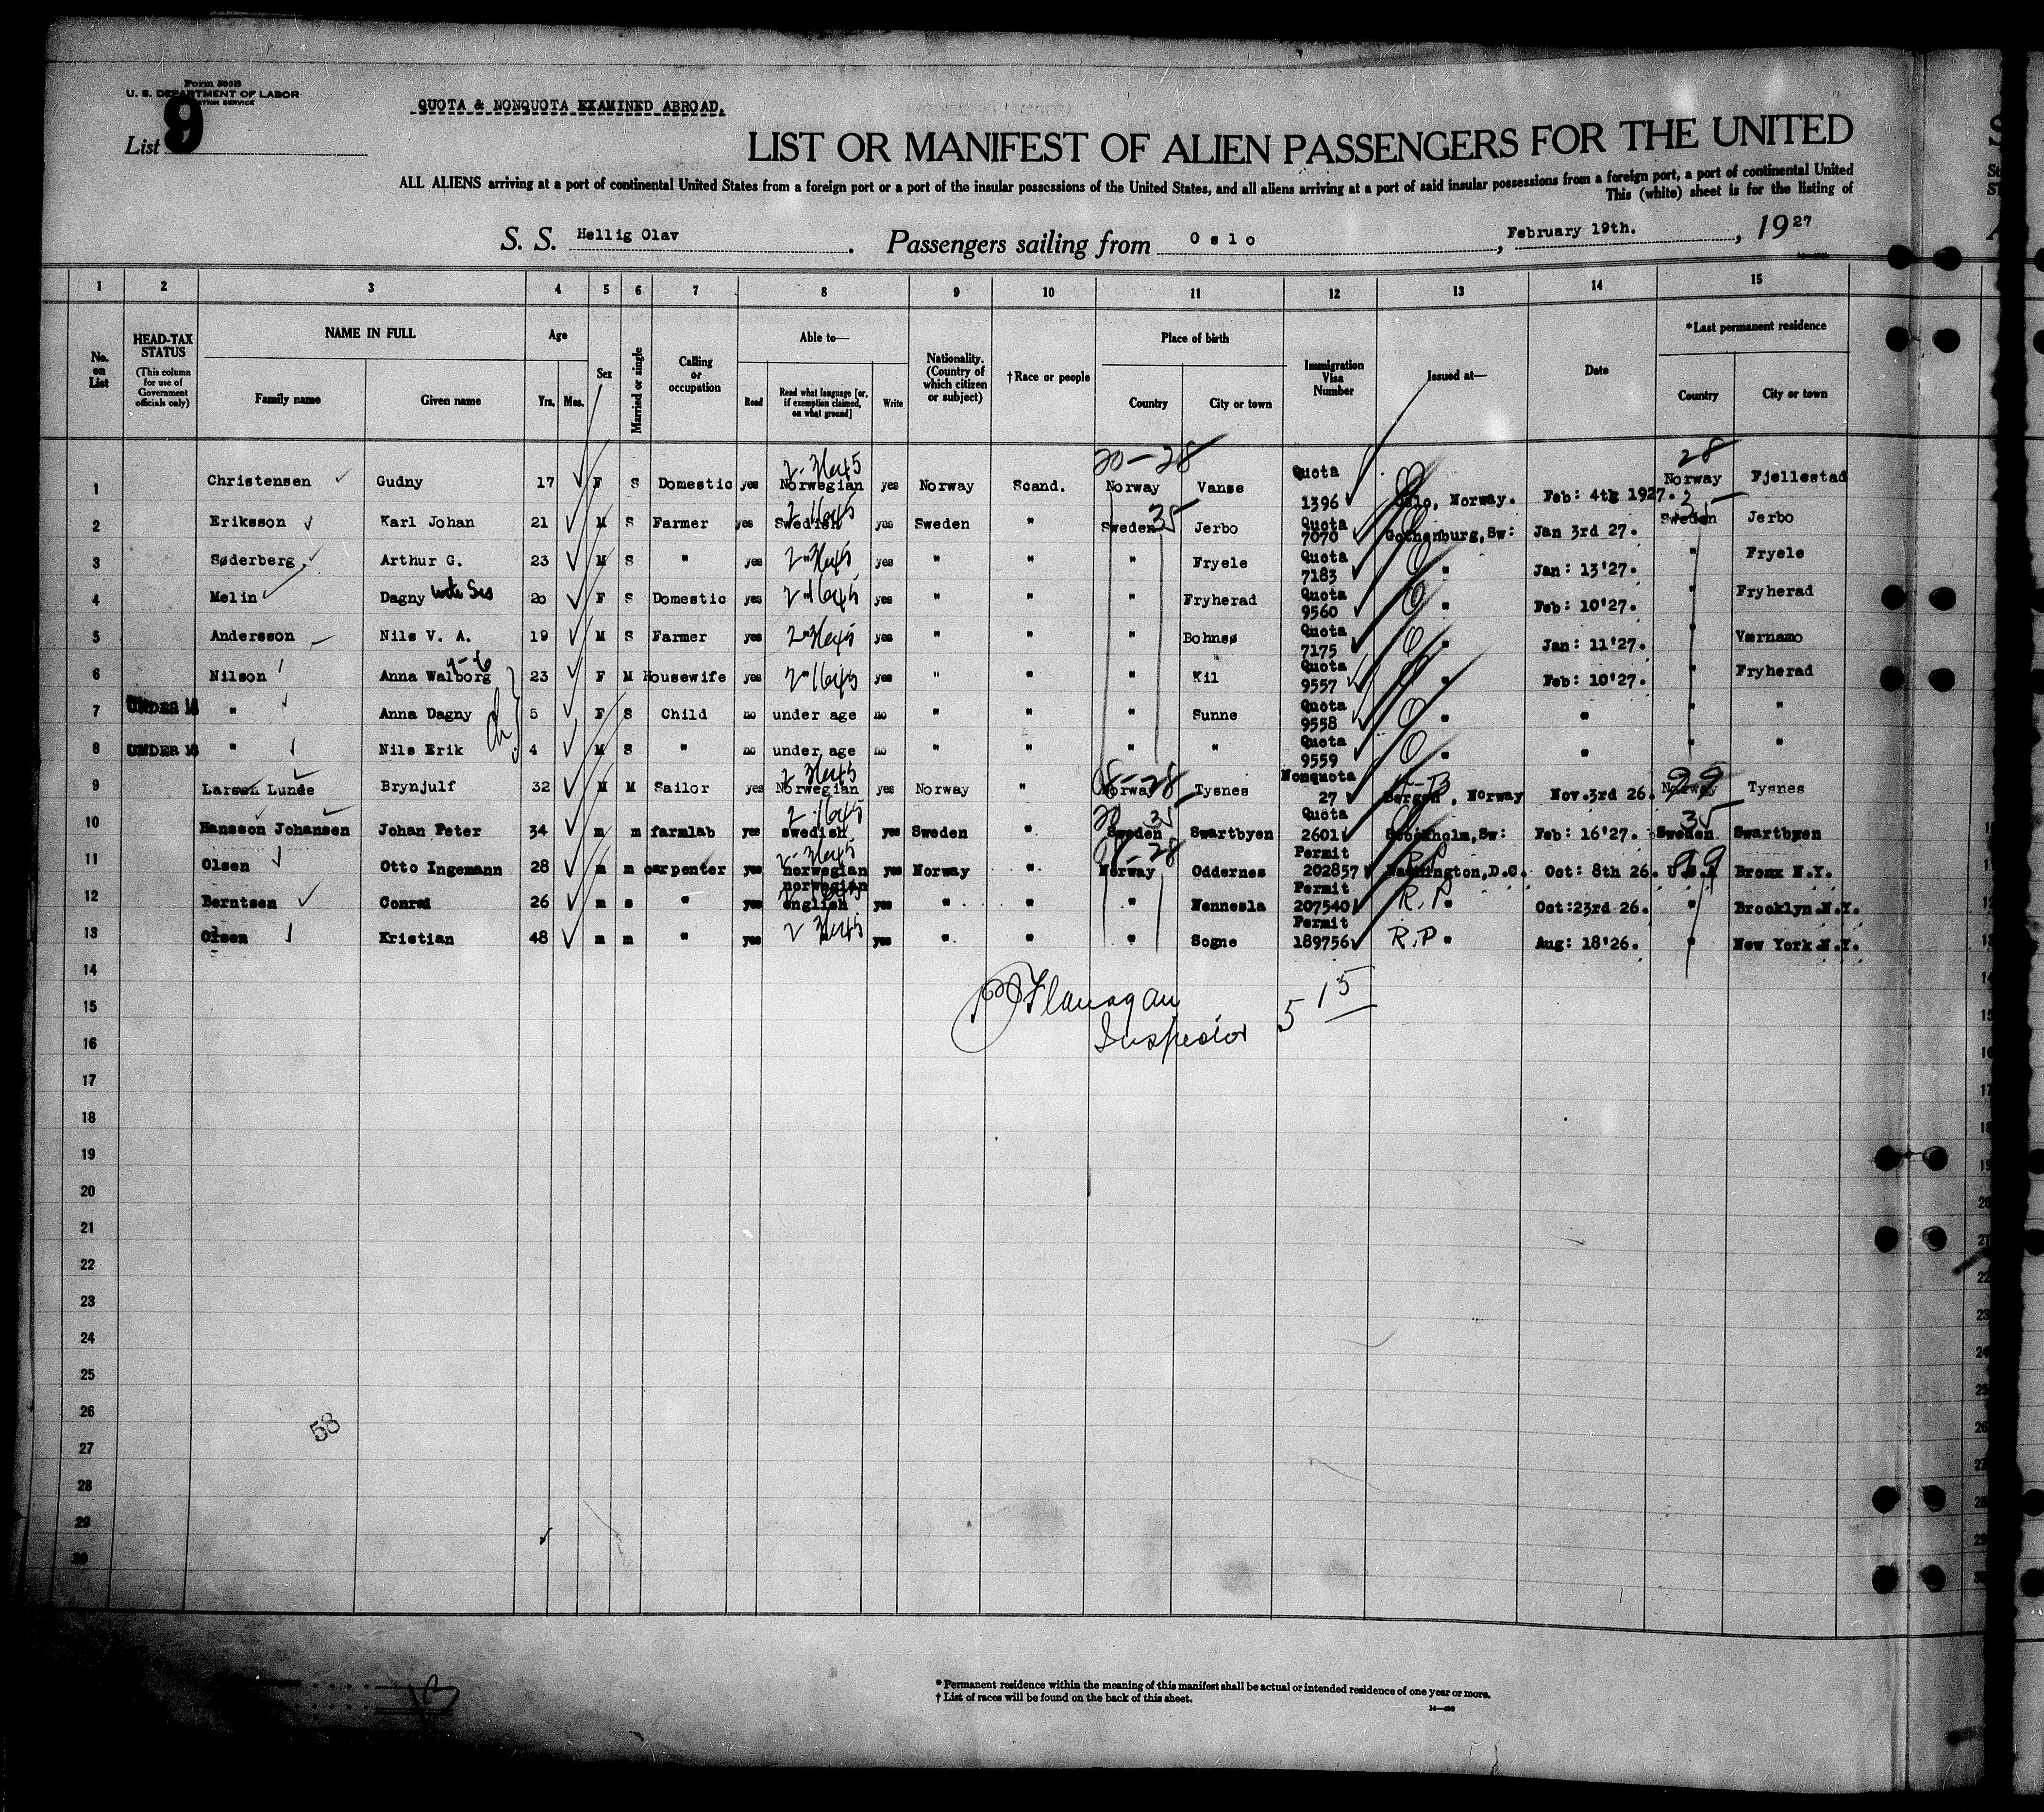 Form 500B
U. S. DEPARTMENT OF LABOR
List 9
QUOTA & NONQUOTA EXAMINED ABROAD.
LIST OR MANIFEST OF ALIEN PASSENGERS FOR THE UNITED
ALL ALIENS arriving at a port of continental United States from a foreign port or a port of the insular possessions of the United States, and all aliens arriving at a port of said insular possessions from a foreign port, a port of continental United
This (white) sheet is for the listing of
S. S. Hellig Olav. Passengers sailing from Oslo, February 19th., 1927
1 2 3 4 5 6 7 8 9 10 11 12 13 14 15
No. on List HEAD-TAX STATUS (This column for use of Government officials only) NAME IN FULL Family name Given name Age Yrs. Mos. Sex Married or single Calling or occupation Able to— Read Read what language [or, if exemption claimed, on what ground] Write Nationality. (Country of which citizen or subject) †Race or people Place of birth Country City or town Immigration Visa Number Issued at— Date *Last permanent residence Country City or town
20-28 28
1 Christensen Gudny 17 F S Domestic yes Norwegian yes Norway Scand. Norway Vanse Quota 1396 Oslo, Norway. Feb: 4th 1927. Norway Fjellestad
2 Eriksson Karl Johan 21 M S Farmer yes Swedish yes Sweden " Sweden 35 Jerbo Quota 7070 Gothenburg,Sw: Jan 3rd 27. Sweden 35 Jerbo
3 Søderberg Arthur G. 23 M S " yes " yes " " " Fryele Quota 7183 " Jan: 13'27. " Fryele
4 Melin Dagny 20 F S Domestic yes " yes " " " Fryherad Quota 9560 " Feb: 10'27. Fryherad
5 Andersson Nils V. A. 19 M S Farmer yes " yes " " " Bohnsø Quota 7175 " Jan: 11'27. " Værnamo
6 Nilson Anna Walborg 23 F M Housewife yes " yes " " " Kil Quota 9557 " Feb: 10'27. " Fryherad
7 UNDER 16 " Anna Dagny 5 F S Child no under age no " " " Sunne Quota 9558 " " "
8 UNDER 16 " Nils Erik 4 M S " no under age no " " " " Quota 9559 " " " "
9 Larsen Lunde Brynjulf 32 M M Sailor yes Norwegian yes Norway " Norway Tysnes Nonquota 27 Bergen, Norway Nov.3rd 26. Norway 99 Tysnes
10 Hansson Johansen Johan Peter 34 m m farmlab yes swedish yes Sweden " Sweden 35 Swartbyen Quota 2601 Stockholm,Sw: Feb: 16'27. Sweden 35 Swartbyen
11 Olsen Otto Ingemann 28 m m carpenter yes norwegian yes Norway " Norway Oddernes Permit 202857 Washington,D.C. Oct: 8th 26. U.S.A 99 Bronx N.Y.
12 Berntsen Conrad 26 m s " yes norwegian english yes " " " Hennesla Permit 207540 R.P. " Oct:23rd 26. " Brooklyn.N.Y.
13 Olsen Kristian 48 m m " yes yes " " " Sogne Permit 189756 R.P " Aug: 18'26. " New York.N.Y.
14
Flanagan
15
5 15
Inspector
16
17
18
19
20
21
22
23
24
25
26
58
27
28
29
30
* Permanent residence within the meaning of this manifest shall be actual or intended residence of one year or more.
† List of races will be found on the back of this sheet.